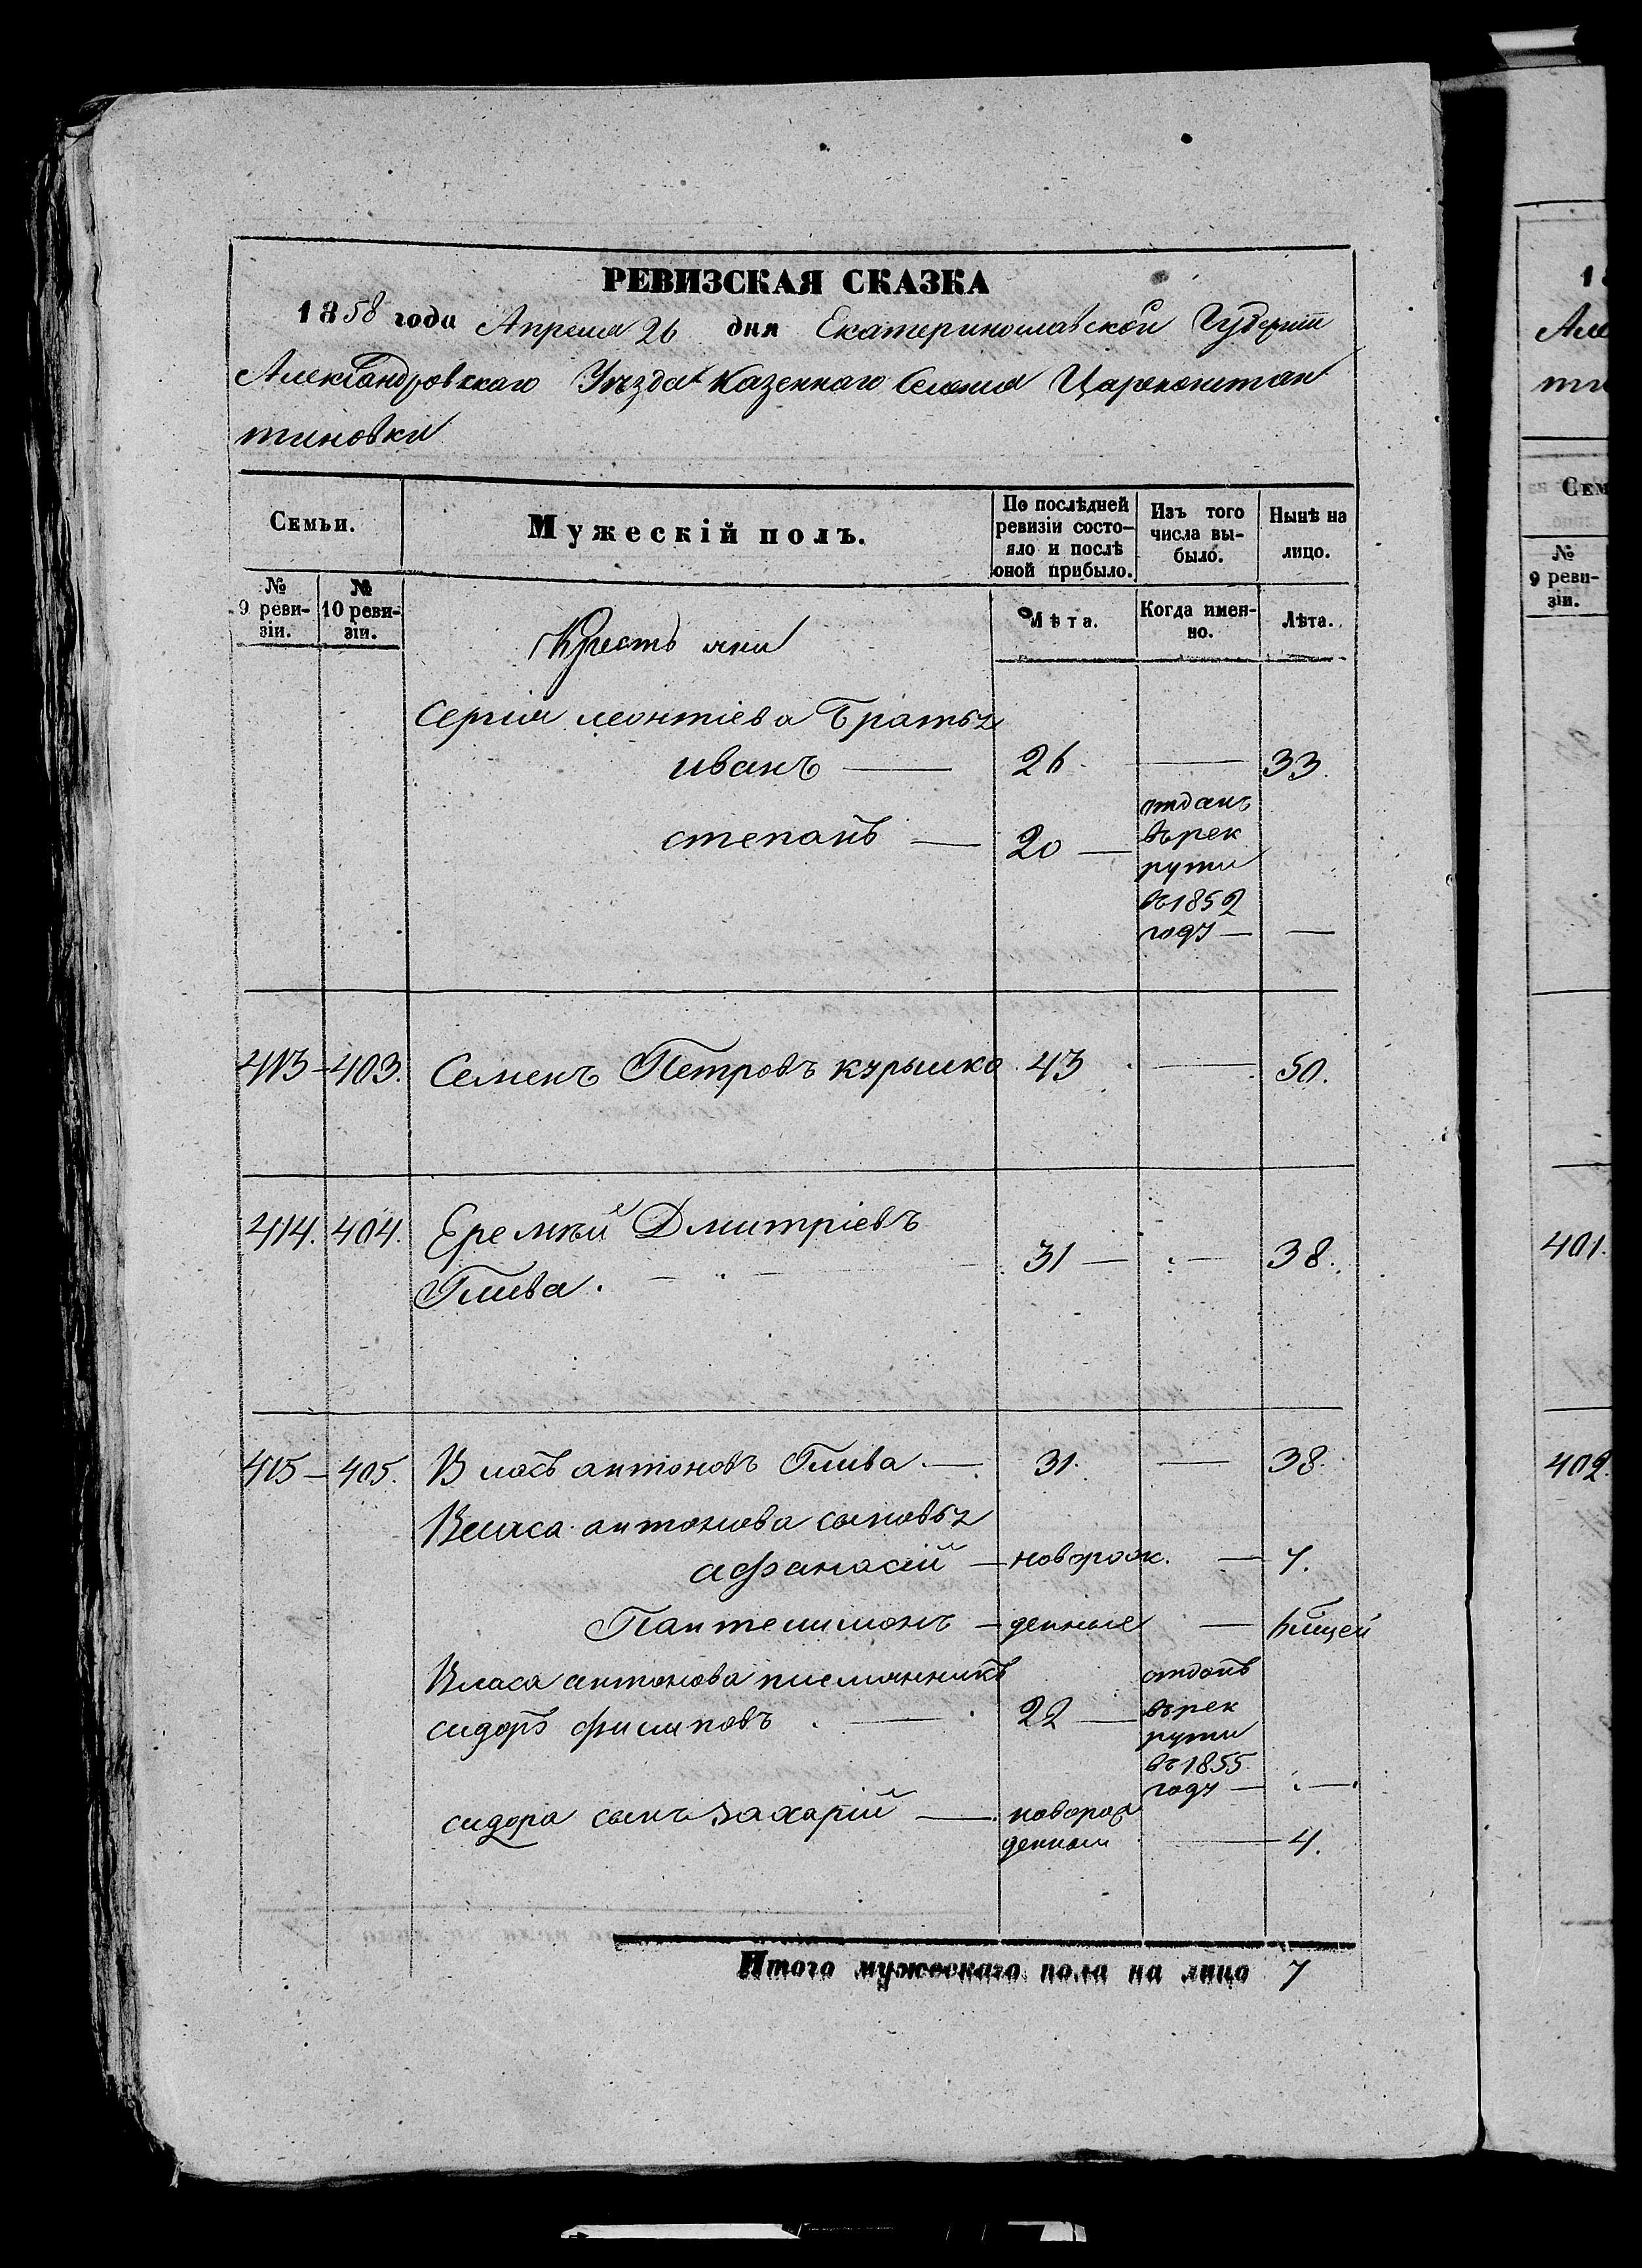 РЕВИЗСКАЯ СКАЗКА
1858 года Апреля 26 дня Екатеринославской Губерніи
Александровскаго Уѣзда Казеннаго Селенія Цареконстан
тиновки
Семьи.
Мужескій полъ.
По послѣдней ревизіи состо-
яло и послѣ
оной прибыло.
Изъ того
числа вы-
было.
Нынѣ на
лицо.
№
9 реви-
зіи.
№
10 реви-
зіи.
Крестьяни
Лѣта.
Когда имен-
но.
Лѣта.
Сергія леонтіева Братья
иванъ — 26. — 33.
степанъ — 20 —
отданъ
въ рек
руты
въ 1852
году — —
413 - 403. Семенъ Петровъ курылко 43 — 50.
414. 404. Еремѣй Дмитріевъ
Глива. — 31 — — 38.
415 - 405. Власъ антоновъ Глива. — 31. — 38.
Власа антонова сыновья
афанасій — новорож. — 4.
Пантелимонъ — денные —
Власа антонова племянникъ
сидоръ филиповъ. — 22 —
отданъ
въ рек
руты
въ 1855
году — —
сидора сынъ захарій — новорож
денный — 4.
Итого мужескаго пола на лицо 7
18
Але
ти
Сем
№
9 реви-
зіи.
401.
402.